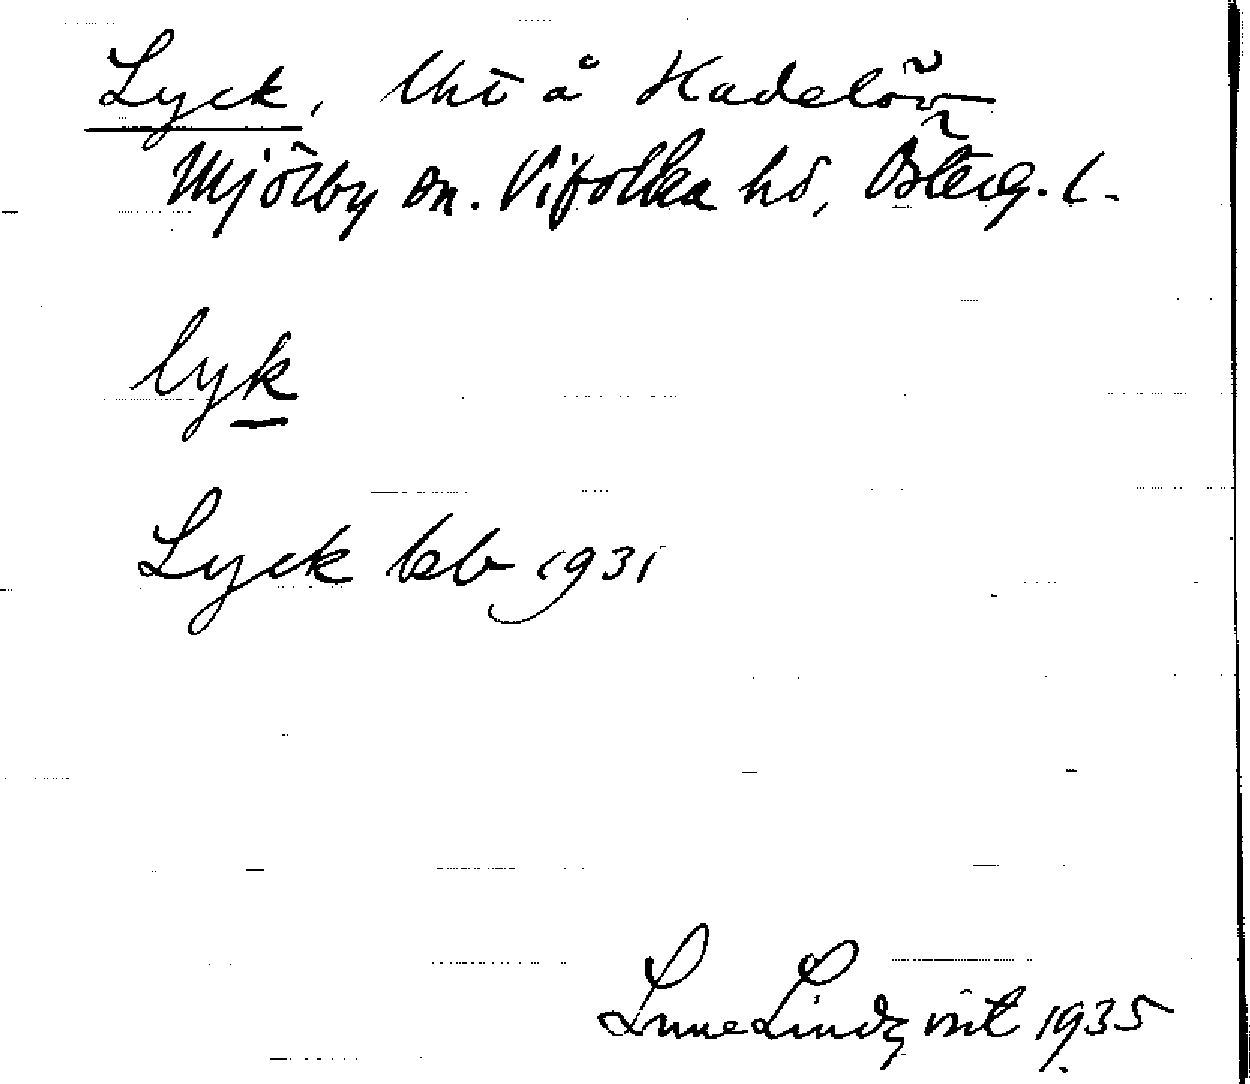 Lyck, lht å Hadelö
Mjölby sn. Vifolka hd, Österg. l.
lyk
Lyck kb 1931
Sune Lindqvist 1935